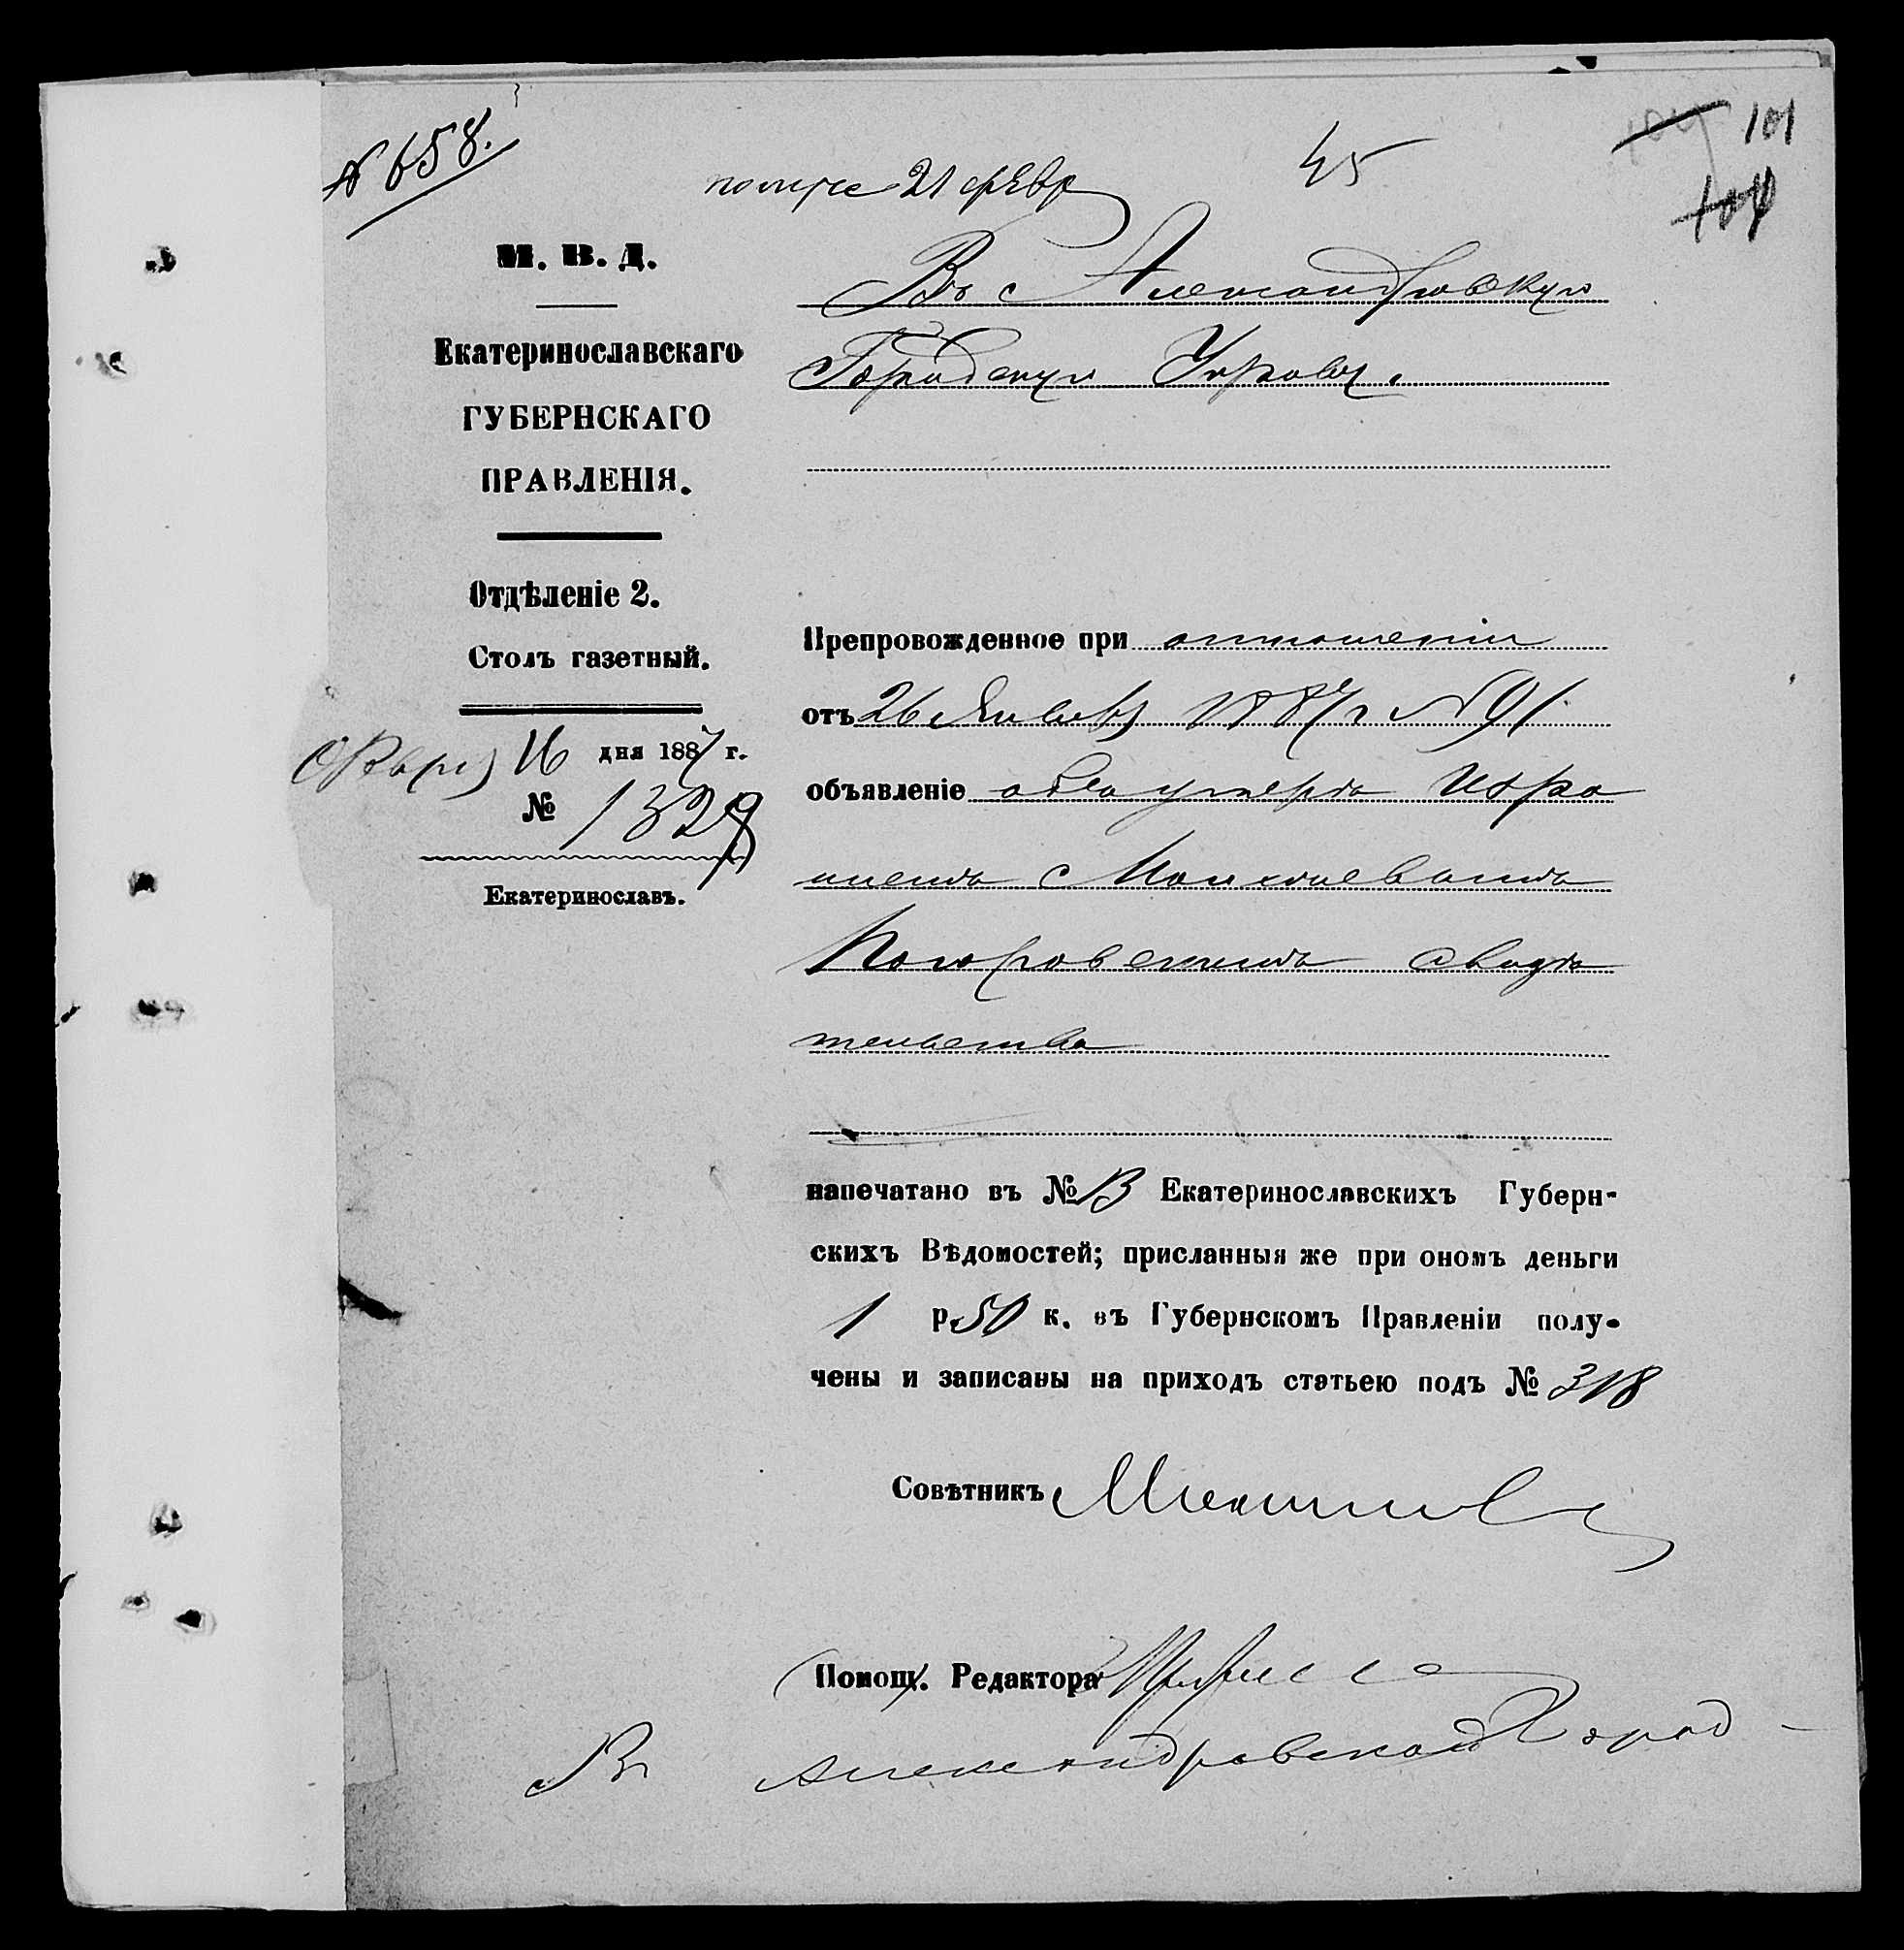 № 658.
получе 21 февр
45
101
М. В. Д.
Екатеринославскаго
ГУБЕРНСКАГО
ПРАВЛЕНІЯ.
Отдѣленіе 2.
Столъ газетный.
16 дня 1887 г.
№ 1329
Екатеринославъ.
Въ Александровскую
Городскую Управу.
Препровожденное при отношеніи
отъ 26 Января 1887 г № 91
объявленіе объ утерѣ
свидѣ
тельства
напечатано въ № 13 Екатеринославскихъ Губерн-
скихъ Вѣдомостей; присланныя же при ономъ деньги
1 р. 50 к. въ Губернскомъ Правленіи полу-
чены и записаны на приходъ статьею подъ № 318
Совѣтникъ
Помощ. Редактора
В Александровской Город-